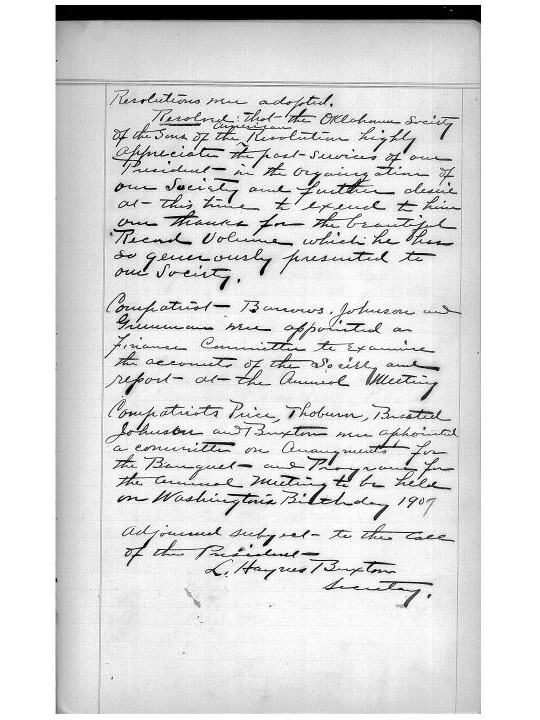 Resolutions were adopted.
Resolved: that the Oklahoma Society
American
of the Sons of the Resolution highly
appreciate the past services of our
President in the organization of
our Society and further desire
at this time to exend to him
our thanks for the beautiful
Record Volume which he has
so generously presented to
our Society.
Compatriot Barrows, Johnson and
Greenman were appointed as
Finance Committee to examine
the accounts of the Society and
report at the Annual Meeting
Compatriots Price, Thoburn,
Johnson and Buxton were appointed
a committee on Arrangments for
the Banquet and Program for
the Annual Meeting to be held
on Washington's Birthday 1907
Adjourned subject to the call
of the President
L. Haynes Buxton
Secretary.